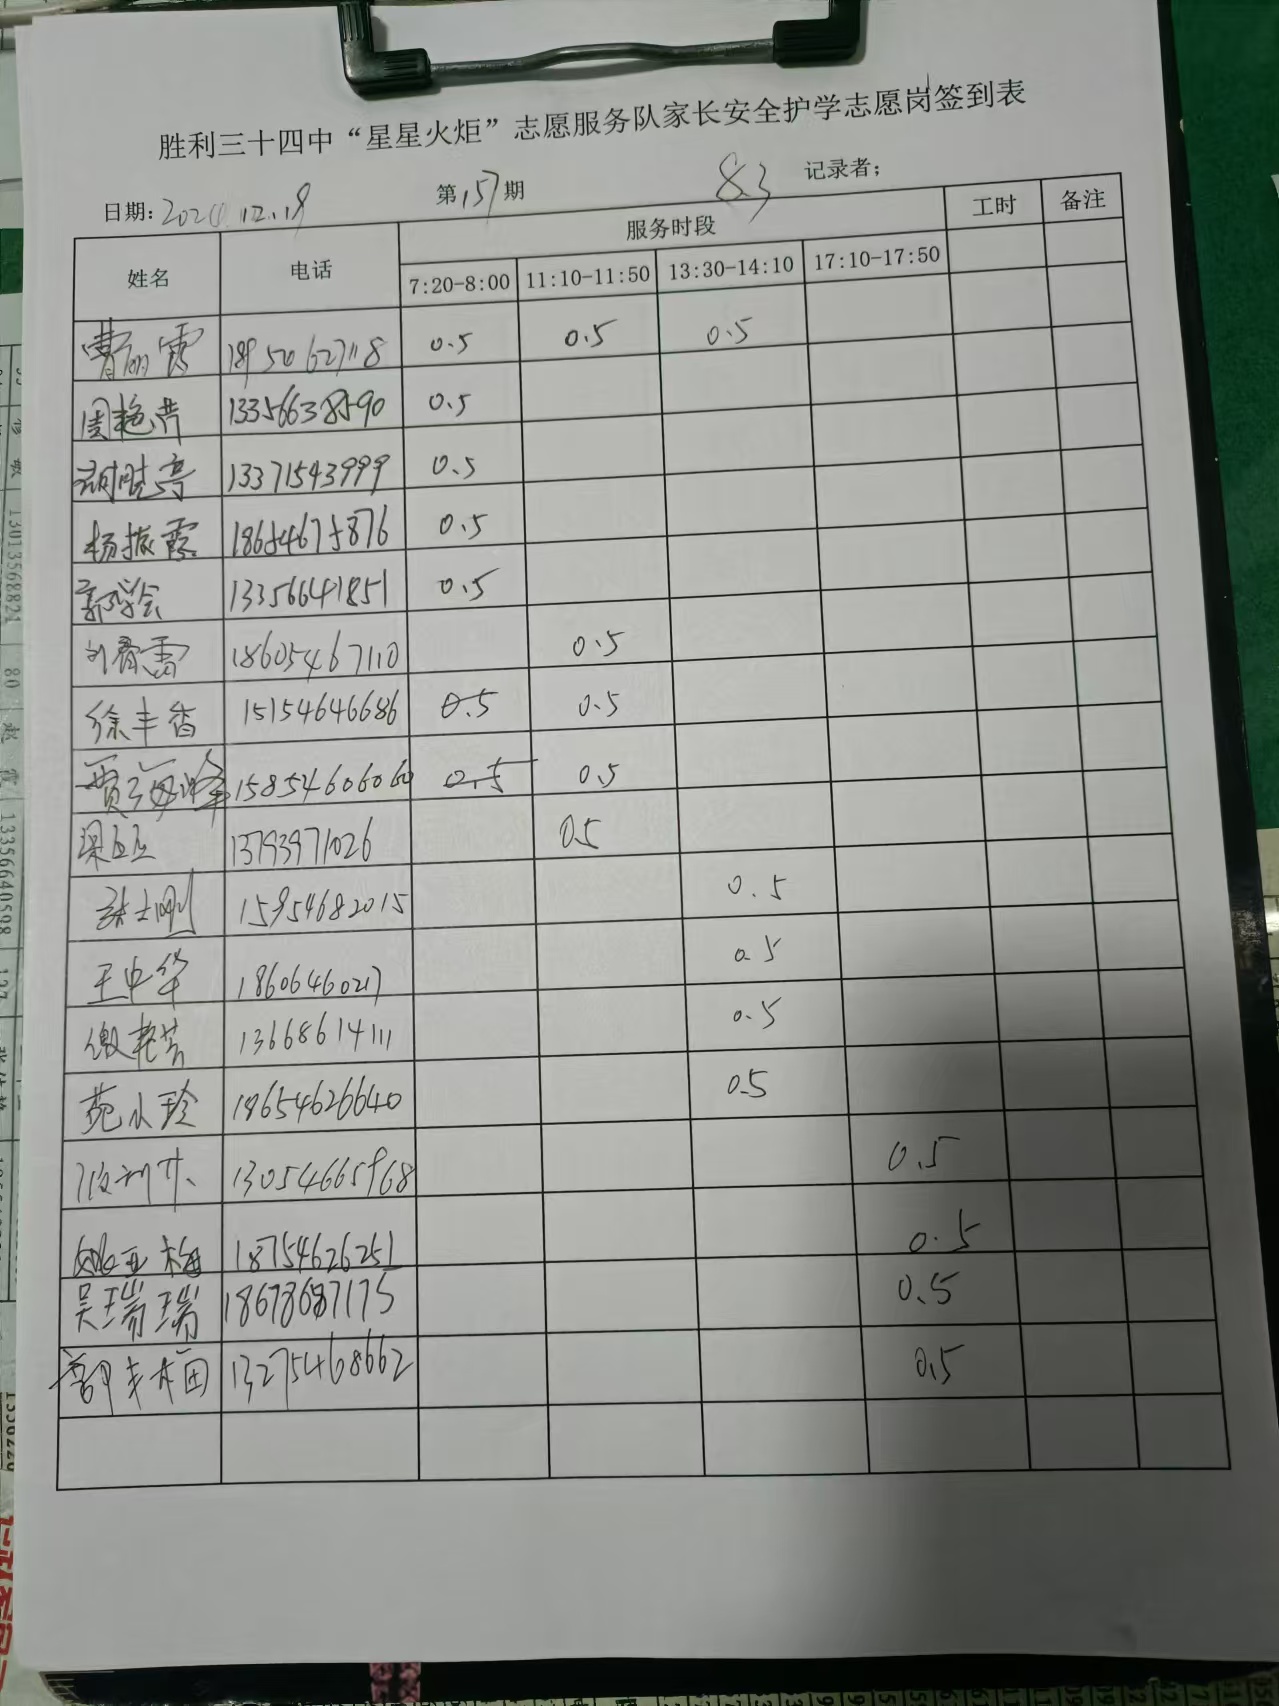 胜利三十四中“星星火炬”志愿服务队家长安全护学志愿岗签到表
日期: 2024.12.19 第157期 8.3 记录者;
姓名 电话 服务时段 工时 备注
7:20-8:00 11:10-11:50 13:30-14:10 17:10-17:50
曹丽霞 0.5 0.5 0.5
周艳 13356638590 0.5
胡胜亭 13371543999 0.5
杨振霞 18654675876 0.5
郭学会 13356641851 0.5
刘春雷 18605467110 0.5
徐丰香 15154646686 0.5 0.5
贾海峰 15854606060 0.5 0.5
梁 13793971026 0.5
张士刚 15954682015 0.5
王中华 18606460217 0.5
缴艳芳 13668614111 0.5
苑小玲 18654626640 0.5
13054665968 0.5
姚亚梅 18754626251 0.5
吴瑞瑞 18678687175 0.5
13275468662 0.5